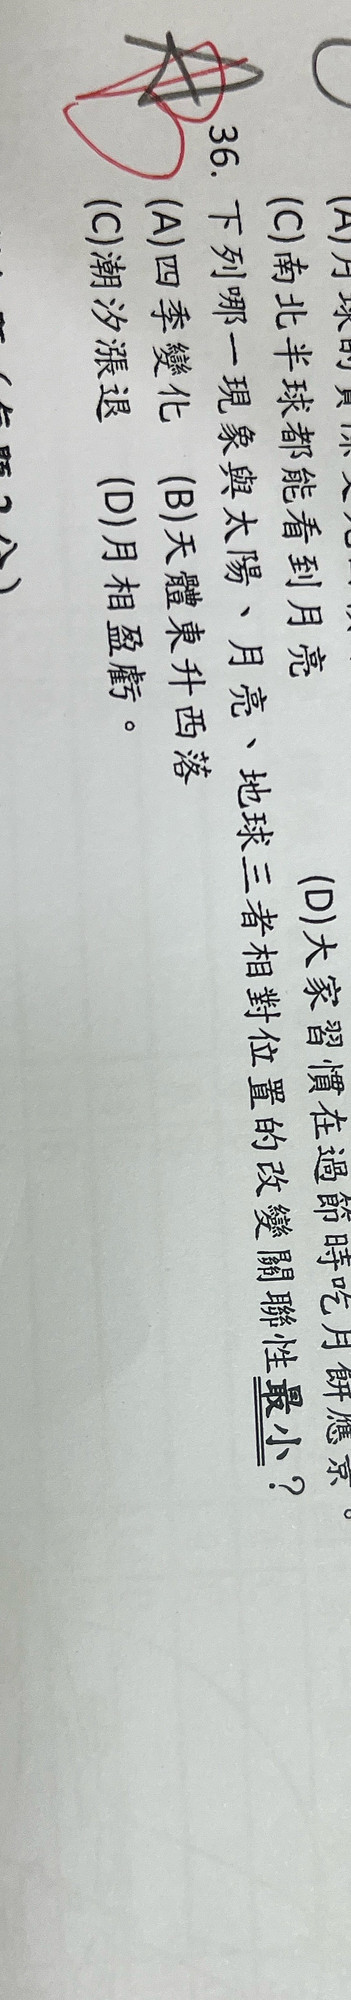 (C)南北半球都能看到月亮 (D)大家習慣在過節時吃月餅應景。
36. 下列哪一現象與太陽、月亮、地球三者相對位置的改變關聯性最小？
(A)四季變化 (B)天體東升西落
(C)潮汐漲退 (D)月相盈虧。